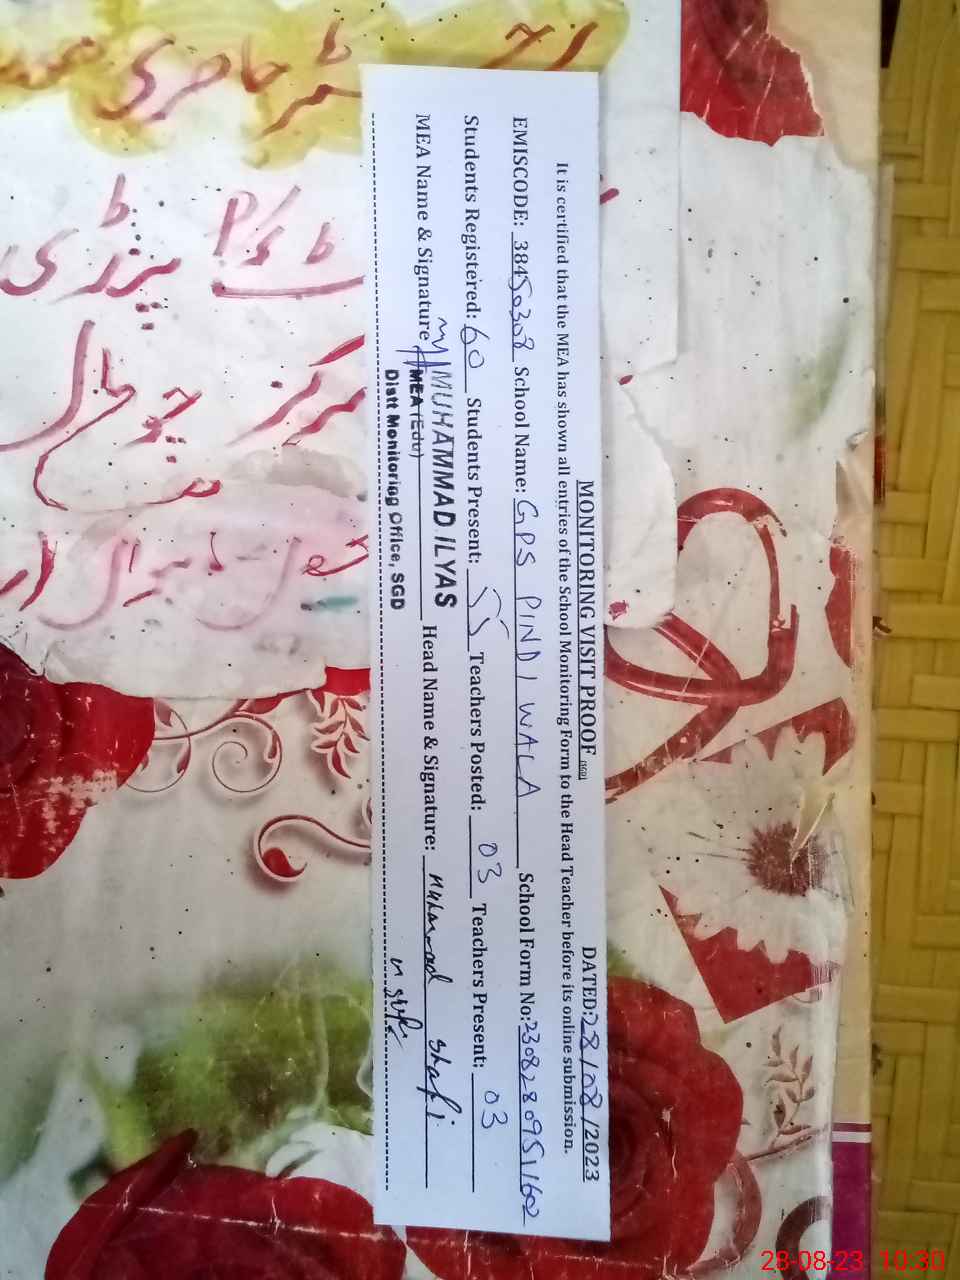 MONITORING VISIT PROOF (SGD) DATED: 28/08/2023
It is certified that the MEA has shown all entries of the School Monitoring Form to the Head Teacher before its online submission.
EMISCODE: 38450308 School Name: GPS PINDI WALA School Form No: 23082809511602
Students Registered: 60 Students Present: 55 Teachers Posted: 03 Teachers Present: 03
MEA Name & Signature MUHAMMAD ILYAS Head Name & Signature: Muhammad Shafi
MEA (Edu)
Distt Monitoring Office, SGD
رجسٹر حاضری
مرکز
28-08-23 10:30